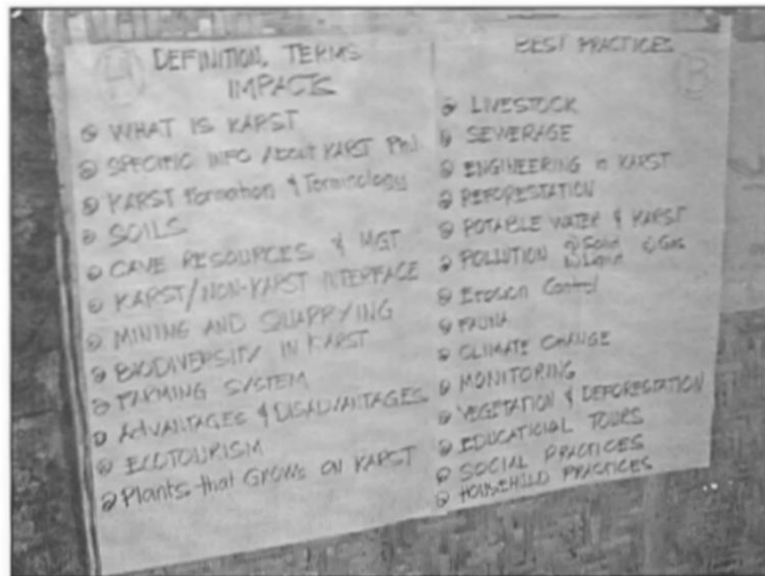 A
DEFINITION, TERMS
IMPACTS
WHAT IS KARST
SPECIFIC INFO About KARST Phil
KARST Formation & Terminology
SOILS
CAVE RESOURCES & MGT
KARST/NON-KARST INTERFACE
MINING AND QUARRYING
BIODIVERSITY IN KARST
FARMING SYSTEM
ADVANTAGES & DISADVANTAGES
ECOTOURISM
Plants that GROWS ON KARST
BEST PRACTICES
B
LIVESTOCK
SEWERAGE
ENGINEERING in KARST
REFORESTATION
POTABLE WATER & KARST
POLLUTION a) Solid c) Gas
b) Liquid
Erosion Control
FAUNA
CLIMATE CHANGE
MONITORING
VEGETATION & DEFORESTATION
EDUCATIONAL TOURS
SOCIAL PRACTICES
HOUSEHOLD PRACTICES